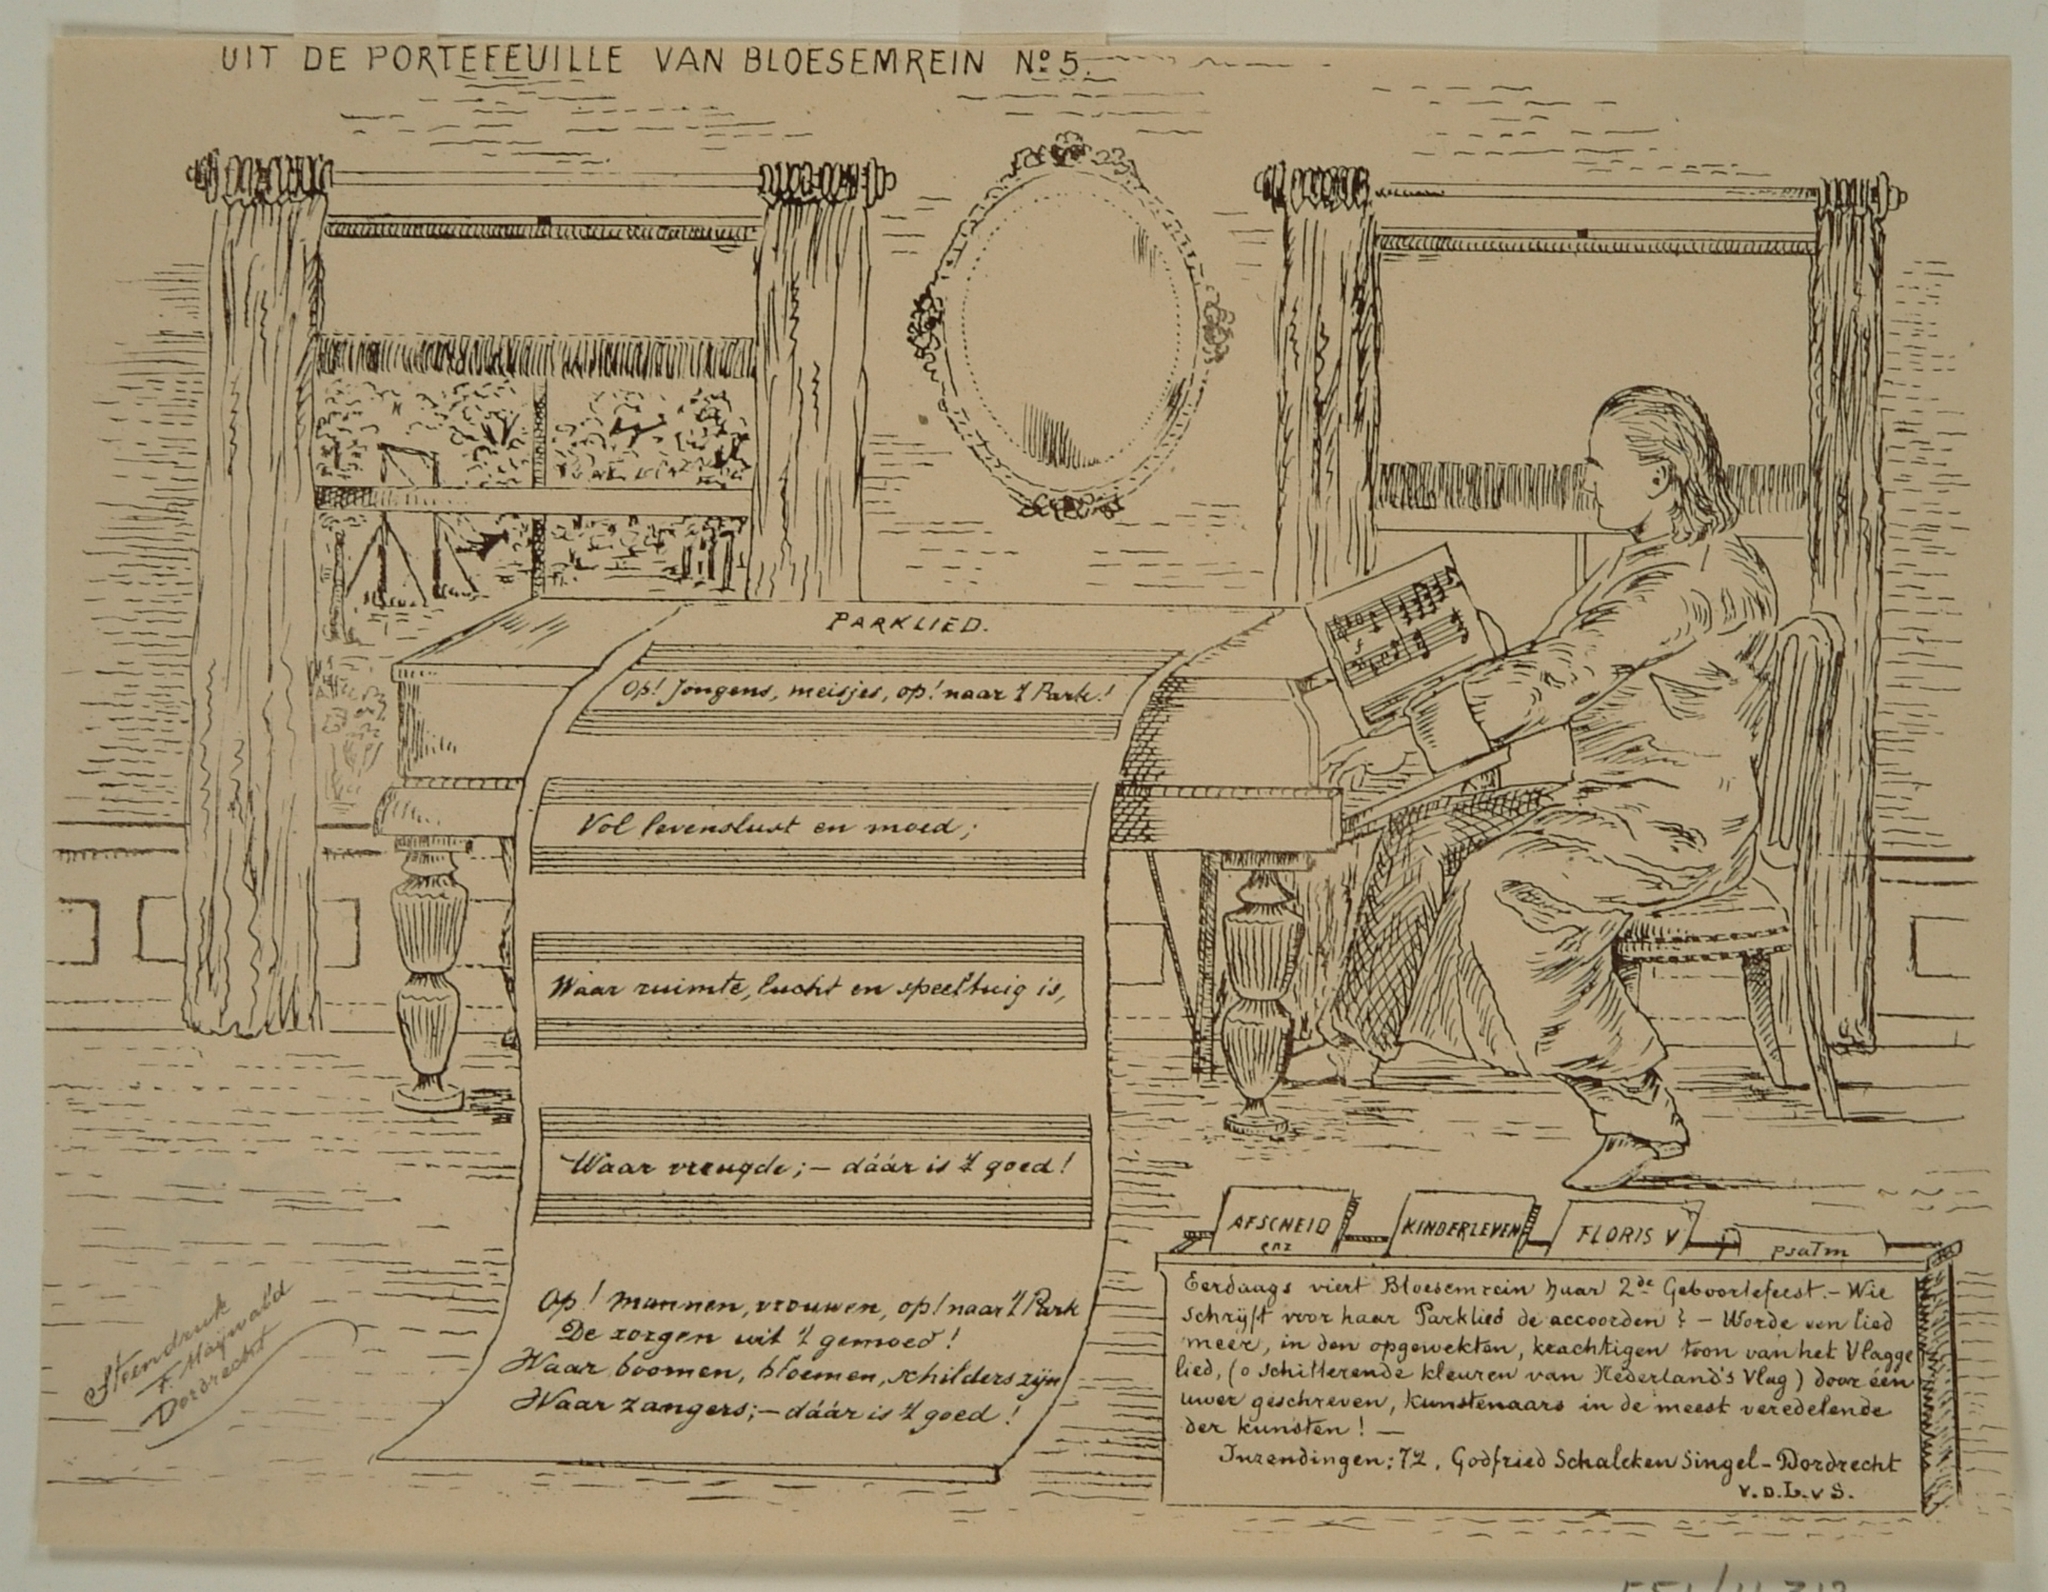 UIT DE PORTEFEUILLE VAN BLOESEMREIN No 5.
PARKLIED.
Op! Jongens, meisjes, op! naar 't Park!
Vol levenslust en moed;
Waar ruimte, lucht en speeltuig is,
Waar vreugde; – dáár is 't goed!
Op! mannen, vrouwen, op! naar 't Park
De zorgen uit 't gemoed!
Waar boomen, bloemen, schilders zijn
Waar zangers; – dáár is 't goed!
Steendruk
F. Maijwald
Dordrecht
AFSCHEID
enz
KINDERLEVEN
FLORIS V
Psalm
Eerdaags viert Bloesemrein haar 2de Geboortefeest. – Wie
schrijft voor haar Parklied de accoorden? – Worde een lied
meer, in den opgewekten, krachtigen toon van het Vlagge
lied, (o schitterende kleuren van Nederland's Vlag) door één
uwer geschreven, kunstenaars in de meest veredelende
der kunsten! –
Inzendingen: 72, Godfried Schalcken Singel – Dordrecht
v.D.L.v S.